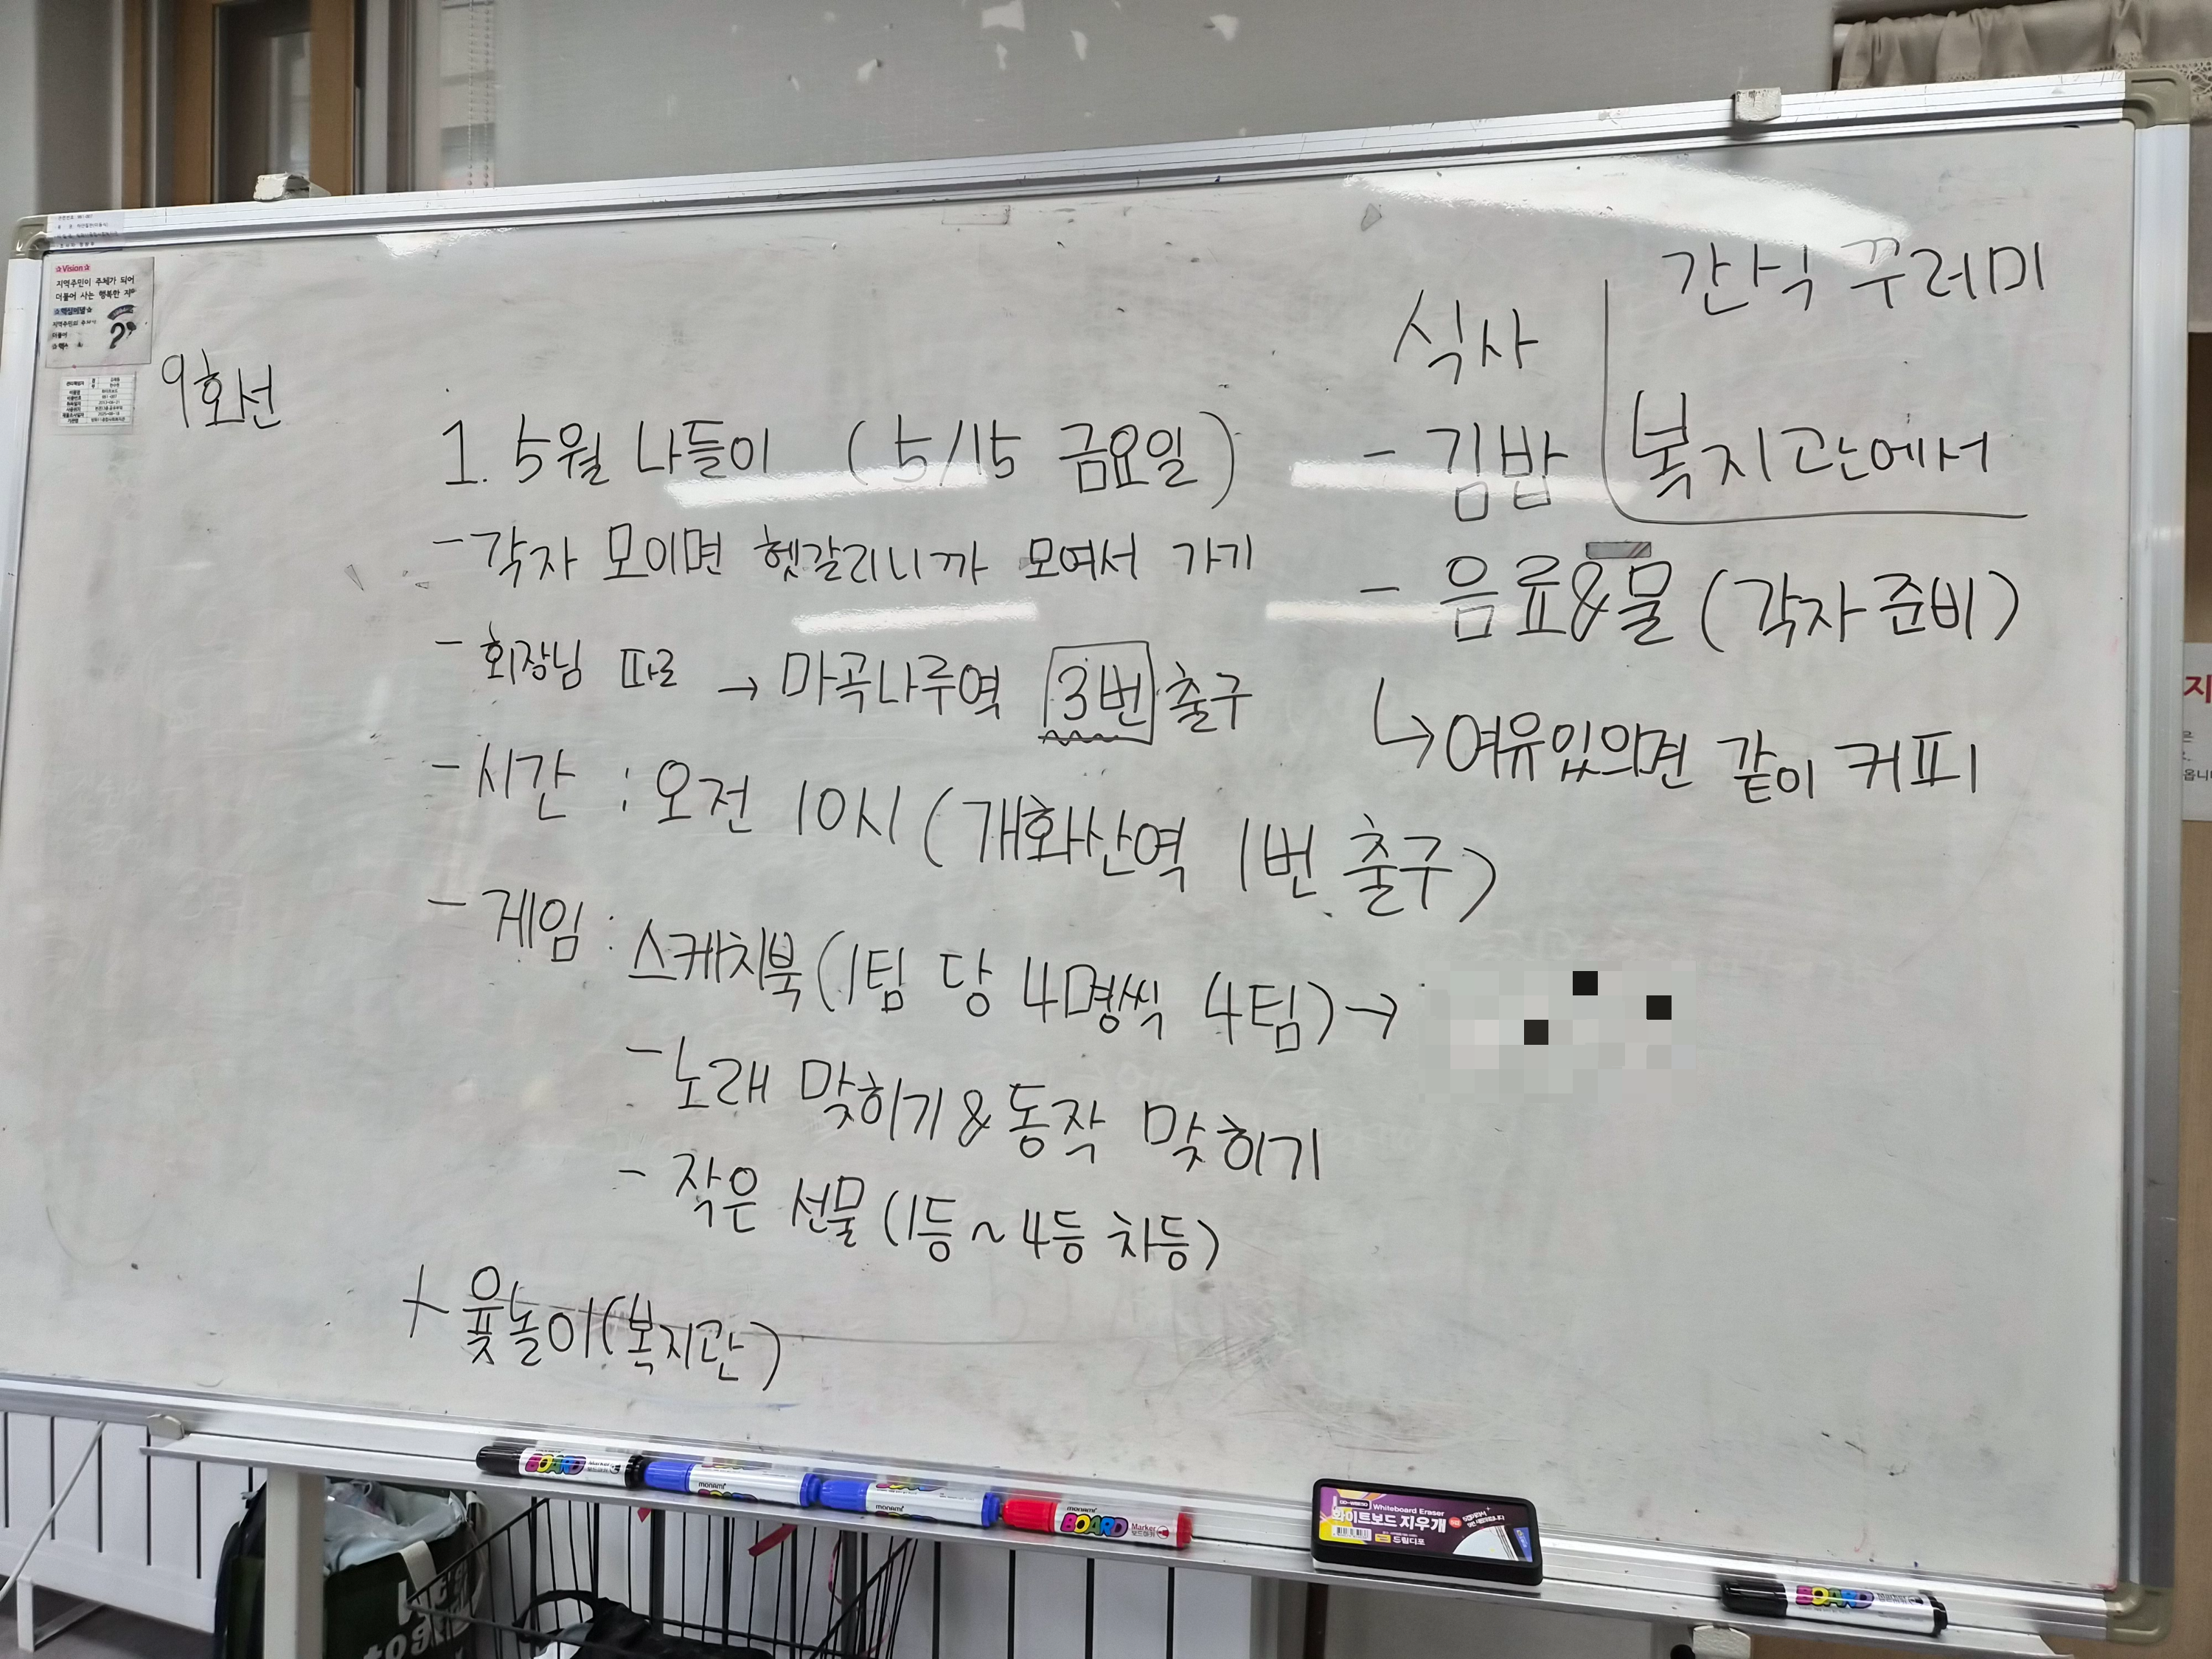 ☆Vision☆
지역주민이 주체가 되어
더불어 사는 행복한
9호선
1. 5월 나들이 (5/15 금요일)
- 각자 모이면 헷갈리니까 모여서 가기
- 회장님 따로 → 마곡나루역 3번 출구
- 시간 : 오전 10시 (개화산역 1번 출구)
- 게임 : 스케치북 (1팀 당 4명씩 4팀) →
- 노래 맞히기 & 동작 맞히기
- 작은 선물 (1등 ~ 4등 차등)
+ 윷놀이 (복지관)
식사
- 김밥
- 음료&물 (각자 준비)
↳ 여유있으면 같이 커피
간식 꾸러미
복지관에서
BOARD Marker
monami
monami
monami BOARD Marker 보드마카
Whiteboard Eraser
화이트보드 지우개
드림디포
BOARD
지